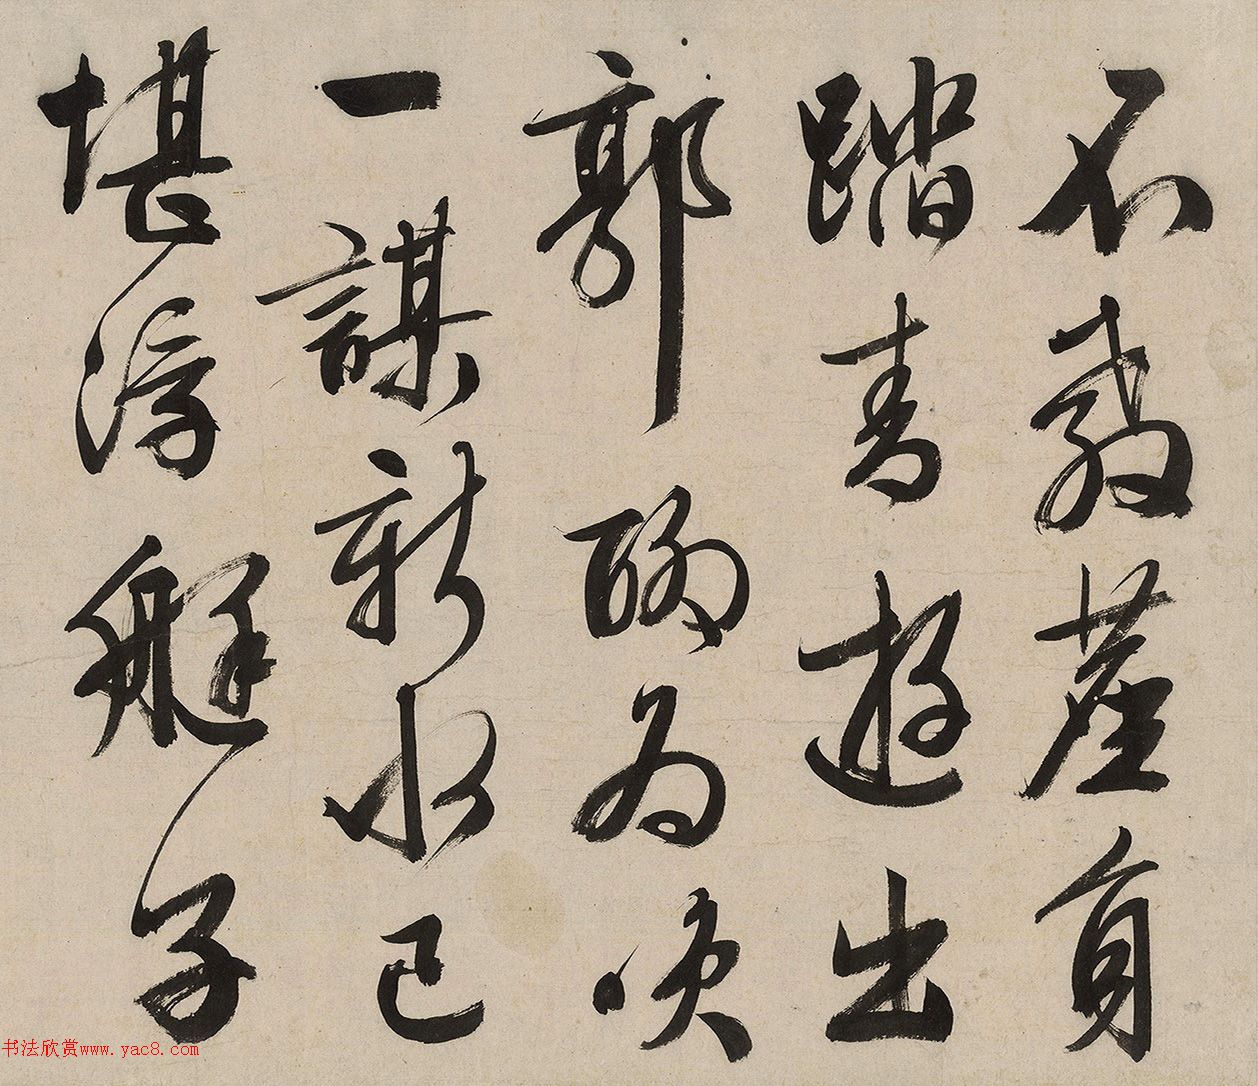 不教虛負
踏青遊出
郭聊為飲
一謀新水已
堪浮艇子
书法欣赏www.yac8.com